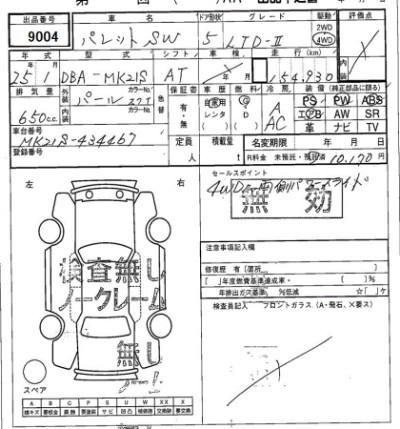 出品番号 車名 ドア形状 グレード 駆動 評価点
9004 パレットSW 5 LTD-II 2WD 4WD
年式 型式 シフト 車検 走行(km)
25 1 DBA-MK21S AT 年 月 154,930
排気量 外装 カラーNo. 色替 保証書 車歴 燃料 冷房 装備(純正部品に限る)
650cc パール 有・無 自家用 レンタ G D A AC PS PW ABS
内装 カラーNo. エアB AW SR
車台番号 革 ナビ TV
MK21S-434467 定員 人 積載量 t 名変期限 年 月 日
登録番号 R料金 未預託・預託済 10,170円
セールスポイント
左 右 4WD 両側パワースライド
無効
注意事項記入欄
検査無し
ノークレーム
修復歴 有(箇所 )
[ ]年度燃費基準達成車・( )%
年排出ガス基準 %低減 ☆[ ]ケ
無し
検査員記入 フロントガラス(A・飛石、X要ス)
スペア
A B C P S U W X XX X